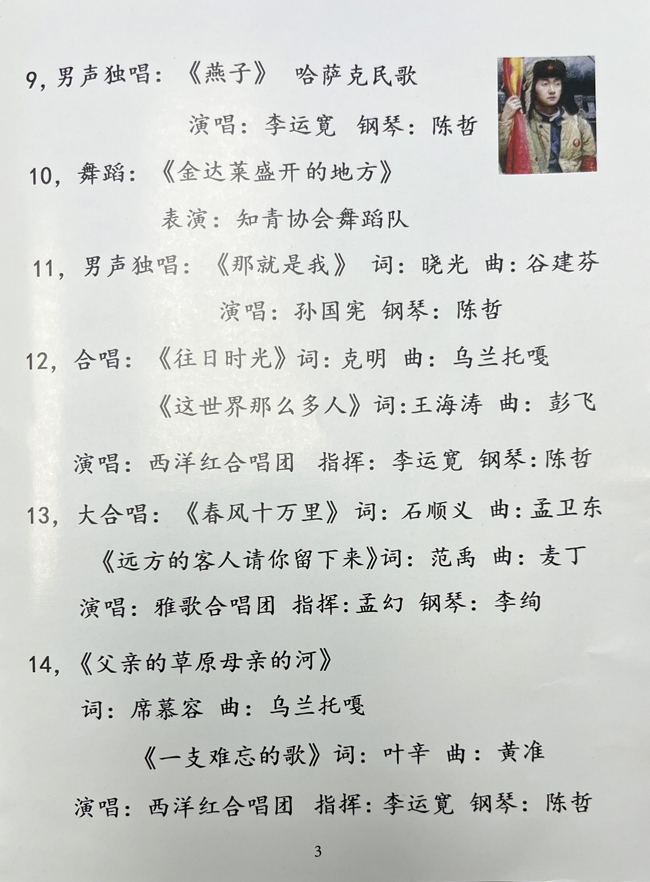 9, 男声独唱：《燕子》 哈萨克民歌
演唱：李运宽 钢琴：陈哲
10, 舞蹈：《金达莱盛开的地方》
表演：知青协会舞蹈队
11, 男声独唱：《那就是我》 词：晓光 曲：谷建芬
演唱：孙国宪 钢琴：陈哲
12, 合唱：《往日时光》词：克明 曲：乌兰托嘎
《这世界那么多人》词：王海涛 曲：彭飞
演唱：西洋红合唱团 指挥：李运宽 钢琴：陈哲
13, 大合唱：《春风十万里》 词：石顺义 曲：孟卫东
《远方的客人请你留下来》词：范禹 曲：麦丁
演唱：雅歌合唱团 指挥：孟幻 钢琴：李绚
14, 《父亲的草原母亲的河》
词：席慕容 曲：乌兰托嘎
《一支难忘的歌》词：叶辛 曲：黄准
演唱：西洋红合唱团 指挥：李运宽 钢琴：陈哲
3